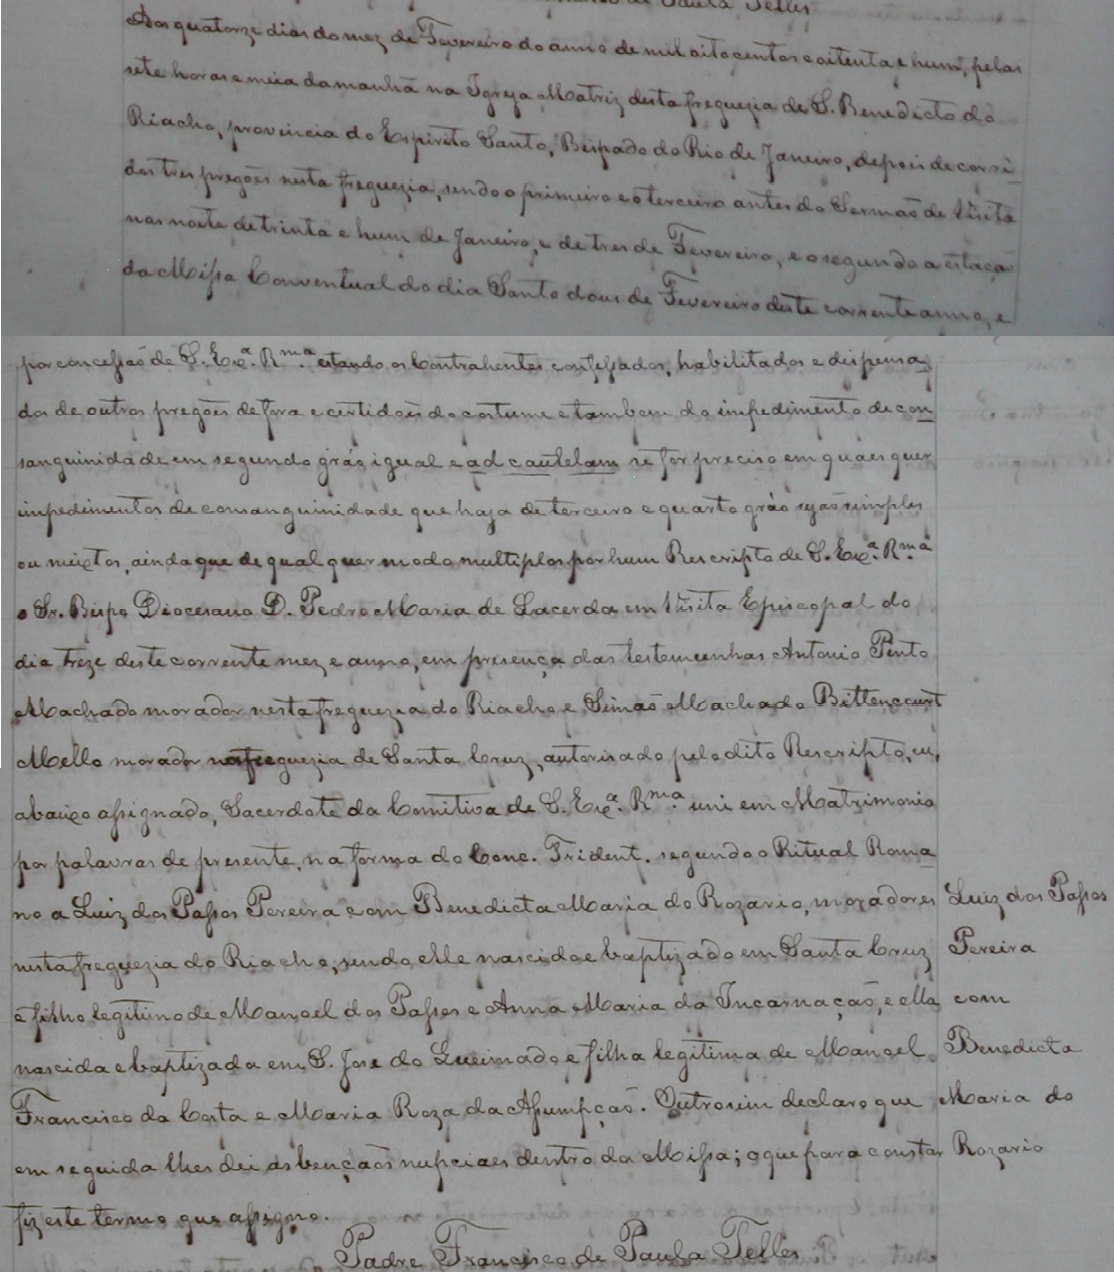 de Paula Telles
Aos quatorze dias do mez de Fevereiro do anno de mil oitocentos e oitenta e hum, pelas
sete horas e meia da manhã na Igreja Matriz desta freguezia de S. Benedicto do
Riacho, provincia do Espirito Santo, Bispado do Rio de Janeiro, depois de corri
dos tres pregões nesta freguezia, sendo o primeiro e o terceiro antes do Sermaõ de Visita
nas noite de trinta e hum de Janeiro, e de tres de Fevereiro, e o segundo a estaçaõ
da Missa Conventual do dia Santo dous de Fevereiro deste corrente anno, e
por concessaõ de S. Exª. Rmª. estando os Contrahentes confessados, habilitados e dispensa
dos de outros pregões de fora e certidões do costume e tambem do impedimento de con
sanguinidade em segundo gráo igual e ad cautelam se for preciso em quaes quer
impedimentos de consanguinidade que haja de terceiro e quarto gráo sejaõ simples
ou mixtos, ainda que de qual quer modo multiplos por hum Rescripto de S. Exª. Rmª
o Sr. Bispo Diocesano D. Pedro Maria de Lacerda em Visita Episcopal do
dia treze deste corrente mez e anno, em presença das testemunhas Antonio Pinto
Machado morador nesta freguezia do Riacho e Simaõ Machado Bittencourt
Mello morador na freguezia de Santa Cruz, autorisado pelo dito Rescripto, eu,
abaixo assignado, Sacerdote da Comitiva de S. Exª. Rmª uni em Matrimonio
por palavras de presente, na forma do Conc. Trident. segundo o Ritual Roma
no a Luiz dos Passos Pereira com Benedicta Maria do Rozario, moradores
nesta freguezia do Riacho, sendo elle nascido e baptizado em Santa Cruz
e filho legitimo de Manoel dos Passos e Anna Maria da Incarnaçaõ, e ella
nascida e baptizada em S. Jose do Queimado e filha legitima de Manoel
Francisco da Costa e Maria Roza da Assumpçaõ. Outrosim declaro que
em seguida lhes dei as bençaõs nupciaes dentro da Missa; o que para constar
fiz este termo que assigno.
Padre Francisco de Paula Telles
Luiz dos Passos
Pereira
com
Benedicta
Maria do
Rozario